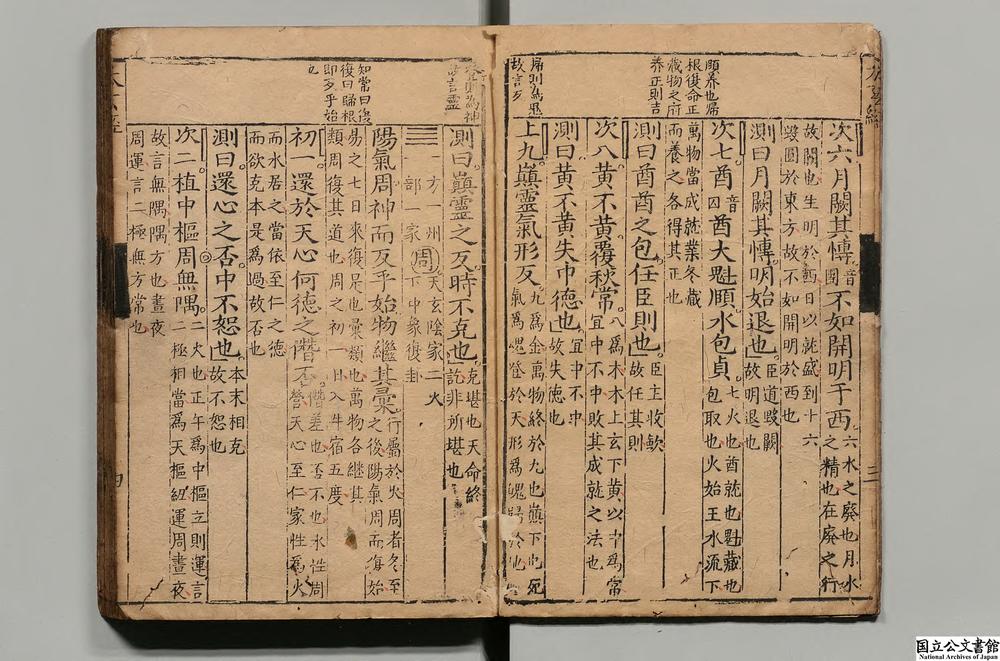 太玄經
三
頤養也歸
根復命正
藏物之府
養正則吉
歸則為鬼
故言反
次六月闕其慱音團不如開明于西六水之廢也月水之精也在廢之行
故闕也生明於西日以就盛到十六
毀圓於東方故不如開明於西也
測曰月闕其慱明始退也臣道毀闕故明退也
次七酋音囚酋大魁頤水包貞七火也酋就也魁藏也包取也火始王水流下
萬物當成就業冬藏
而養之各得其正也
測曰酋酋之包任臣則也臣主收歛故任其則
次八黃不黃覆秋常八爲木木上玄下黃以中爲常宜中不中敗其成就之法也
測曰黃不黃失中德也宜中不中故失德也
上九巔靈氣形反九爲金萬物終於九也巔下也死氣爲魂登於天形爲魄歸於地
登則為神
故言靈
知常曰復
復曰歸根
即反乎始
也
測曰巔靈之反時不克也克堪也天命終訖非所堪也
一方一州
一部一家
周
天玄陰家二火
下中象復卦
陽氣周神而反乎始物繼其彙行屬於火周者冬至之後陽氣周而復始
易之七日來復是也彙類也萬物各繼其
類周復其道也周之初一日入牛宿五度
初一還於天心何德之僭否僭差也否不也水性周營天心至仁家性爲火
而水居之當依至仁之德
而欲克本是爲過故否也
測曰還心之否中不恕也本末相克故不恕也
次二植中樞周無隅二火也正午爲中樞立則運言二極相當爲天樞紐運周晝夜
故言無隅隅方也晝夜
周運言二極無方常也
四
国立公文書館
National Archives of Japan